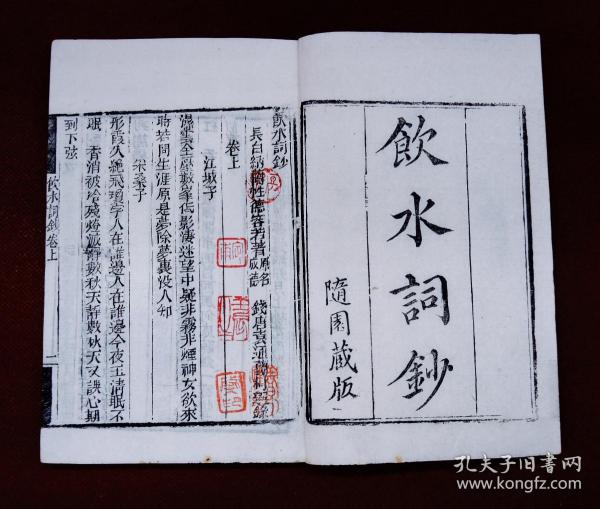 飲水詞鈔
隨園蔵版
飲水詞鈔
長白納蘭性德容若著 原名成德 錢唐袁通
卷上
江城子
溼雲全壓數峯低影淒迷望中疑非霧非煙神女欲來
時若問生涯原是夢除夢裏没人知
采桑子
形霞久絶飛瓊字人在誰邊人在誰邊今夜玉清眠不
眠 香消被冷殘燈滅靜數秋天靜數秋天又誤心期
到下弦
飲水詞鈔卷上
一
孔夫子旧書网
www.kongfz.com